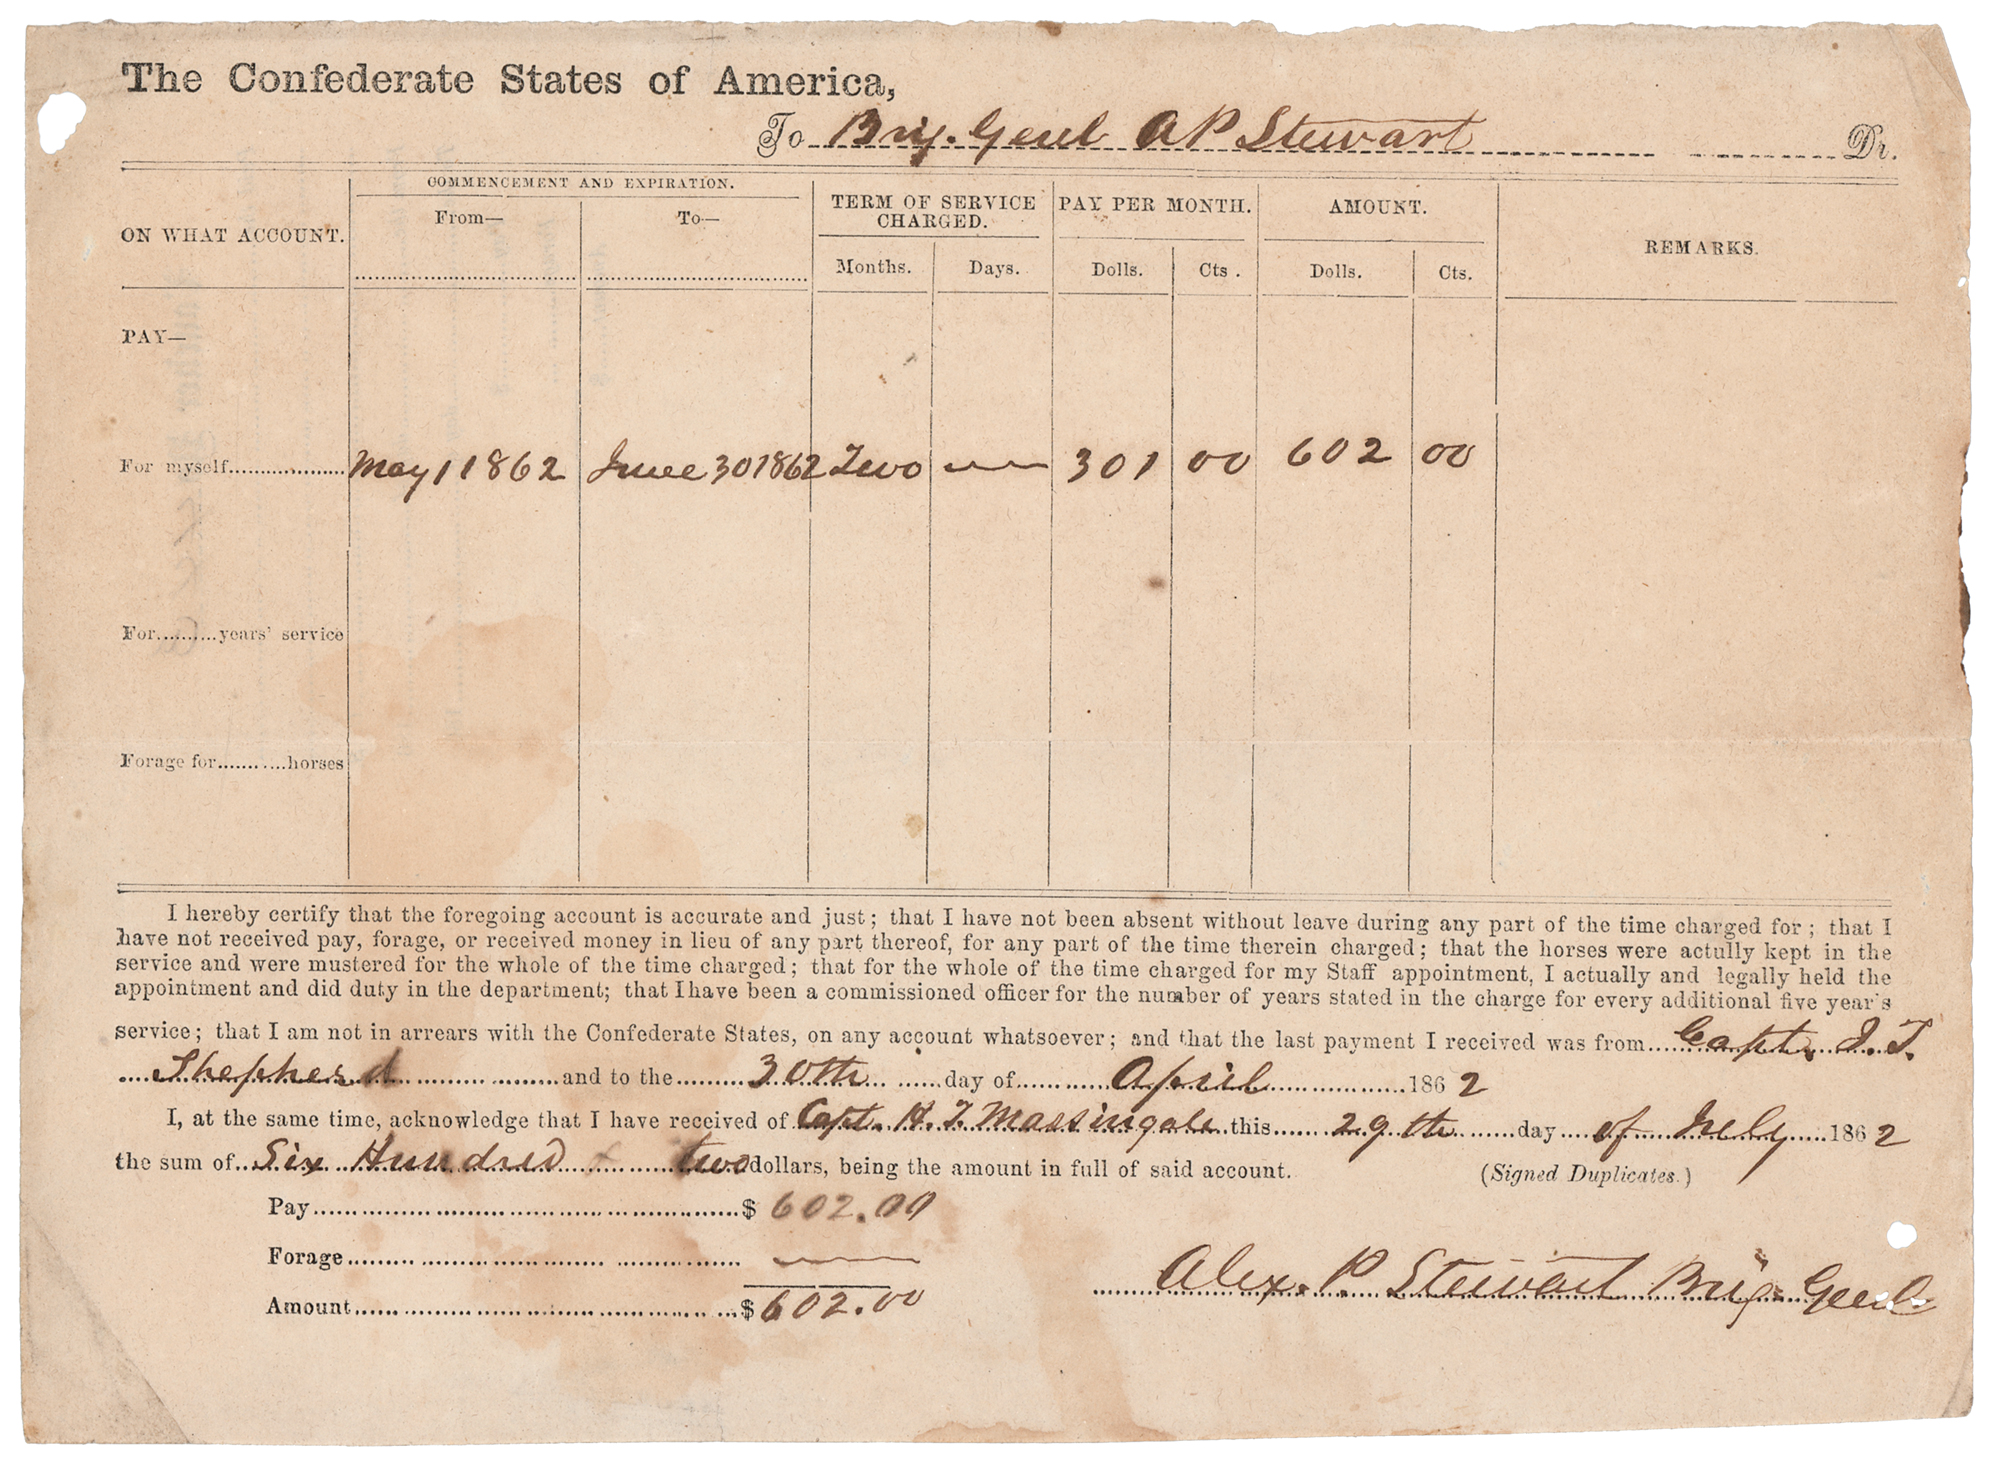 The Confederate States of America,
To Brig. Genl A P Stewart Dr.
ON WHAT ACCOUNT. COMMENCEMENT AND EXPIRATION. TERM OF SERVICE CHARGED. PAY PER MONTH. AMOUNT. REMARKS.
From— To— Months. Days. Dolls. Cts. Dolls. Cts.
PAY—
For myself May 1 1862 June 30 1862 Two — 301 00 602 00
For years' service
Forage for horses
I hereby certify that the foregoing account is accurate and just; that I have not been absent without leave during any part of the time charged for; that I
have not received pay, forage, or received money in lieu of any part thereof, for any part of the time therein charged; that the horses were actully kept in the
service and were mustered for the whole of the time charged; that for the whole of the time charged for my Staff appointment, I actually and legally held the
appointment and did duty in the department; that I have been a commissioned officer for the number of years stated in the charge for every additional five year's
service; that I am not in arrears with the Confederate States, on any account whatsoever; and that the last payment I received was from Capt. J. T.
Shepherd and to the 30th day of April 1862
I, at the same time, acknowledge that I have received of Capt. H. T. Massingale this 29th day of July 1862
the sum of Six Hundred & two dollars, being the amount in full of said account. (Signed Duplicates.)
Pay $ 602.00
Forage —
Amount $ 602.00
Alex. P. Stewart Brig. Genl